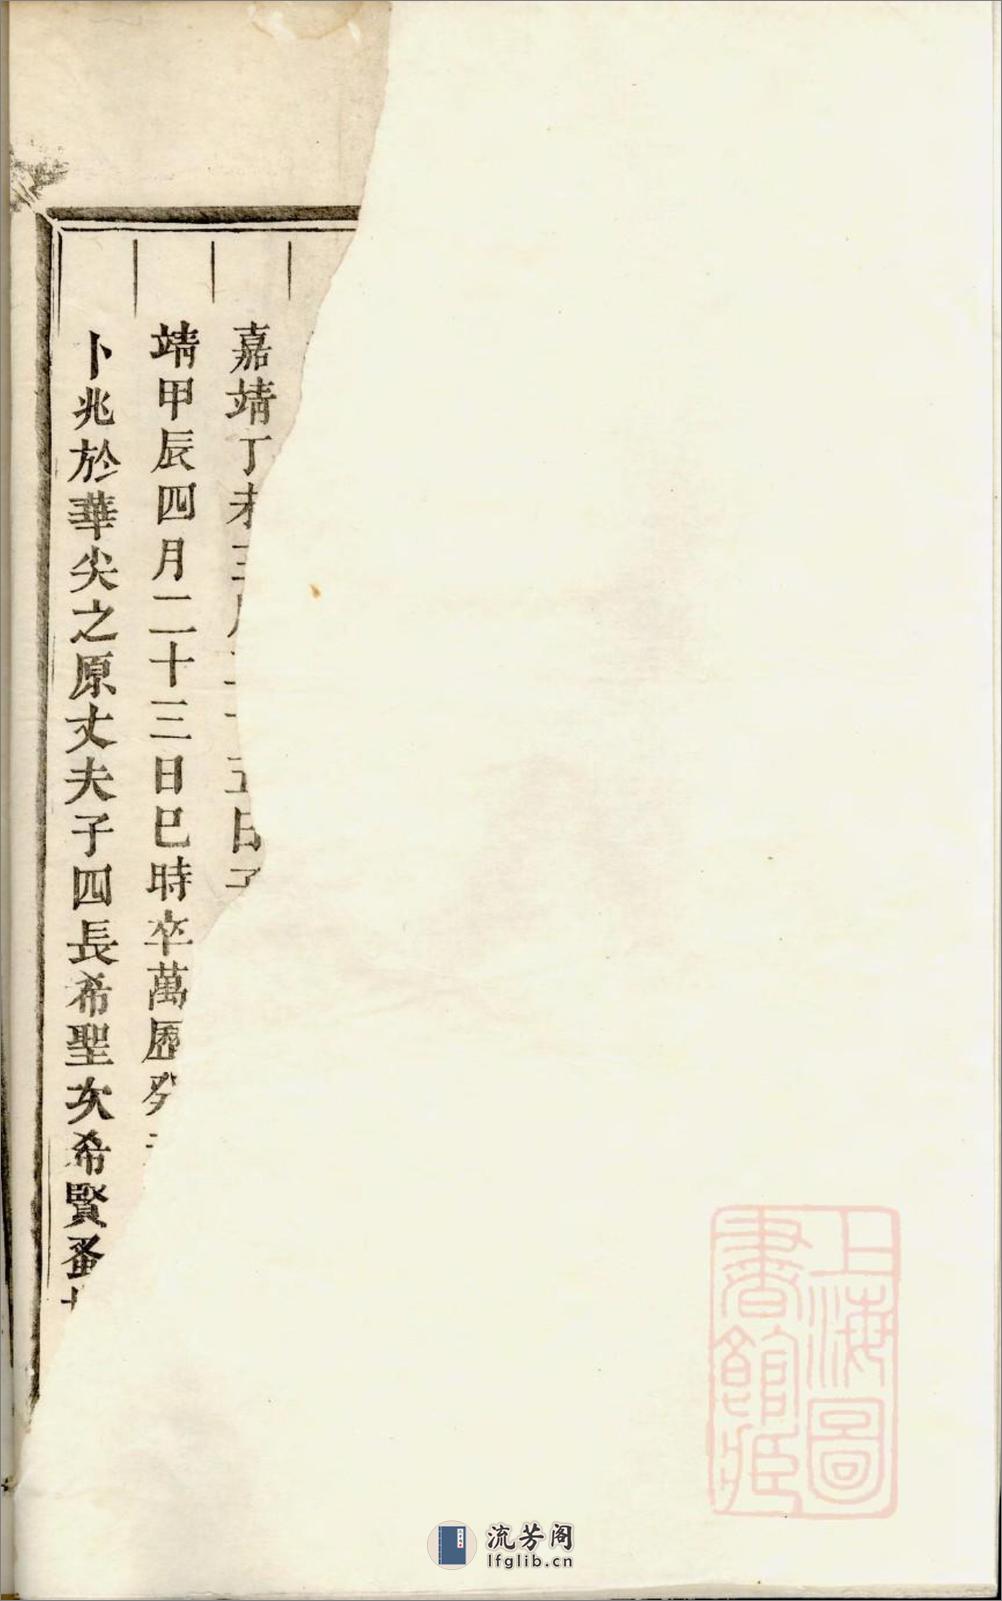 嘉靖丁未
靖甲辰四月二十三日巳時卒萬厯癸
卜兆於華尖之原丈夫子四長希聖次希賢蚤
上海圖
書館藏
流芳阁
lfglib.cn